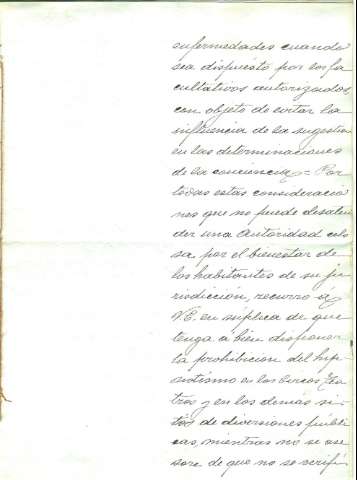 enfermedades cuando
sea dispuesto por los fa
cultativos autorizados,
con objeto de evitar la
influencia de la sugestion
en las determinaciones
de la conciencia = Por
todas estas consideracio
nes que no puede desaten
der una Autoridad celo
sa por el bienestar de
los habitantes de su ju-
risdicción, recurro á
VE. en suplica de que
tenga á bien disponer
la prohibicion del hip
notismo en los Circos, Tea
tros y en los demás si-
tios de diversiones públi
cas, mientras no se ase
sore de que no se verifi